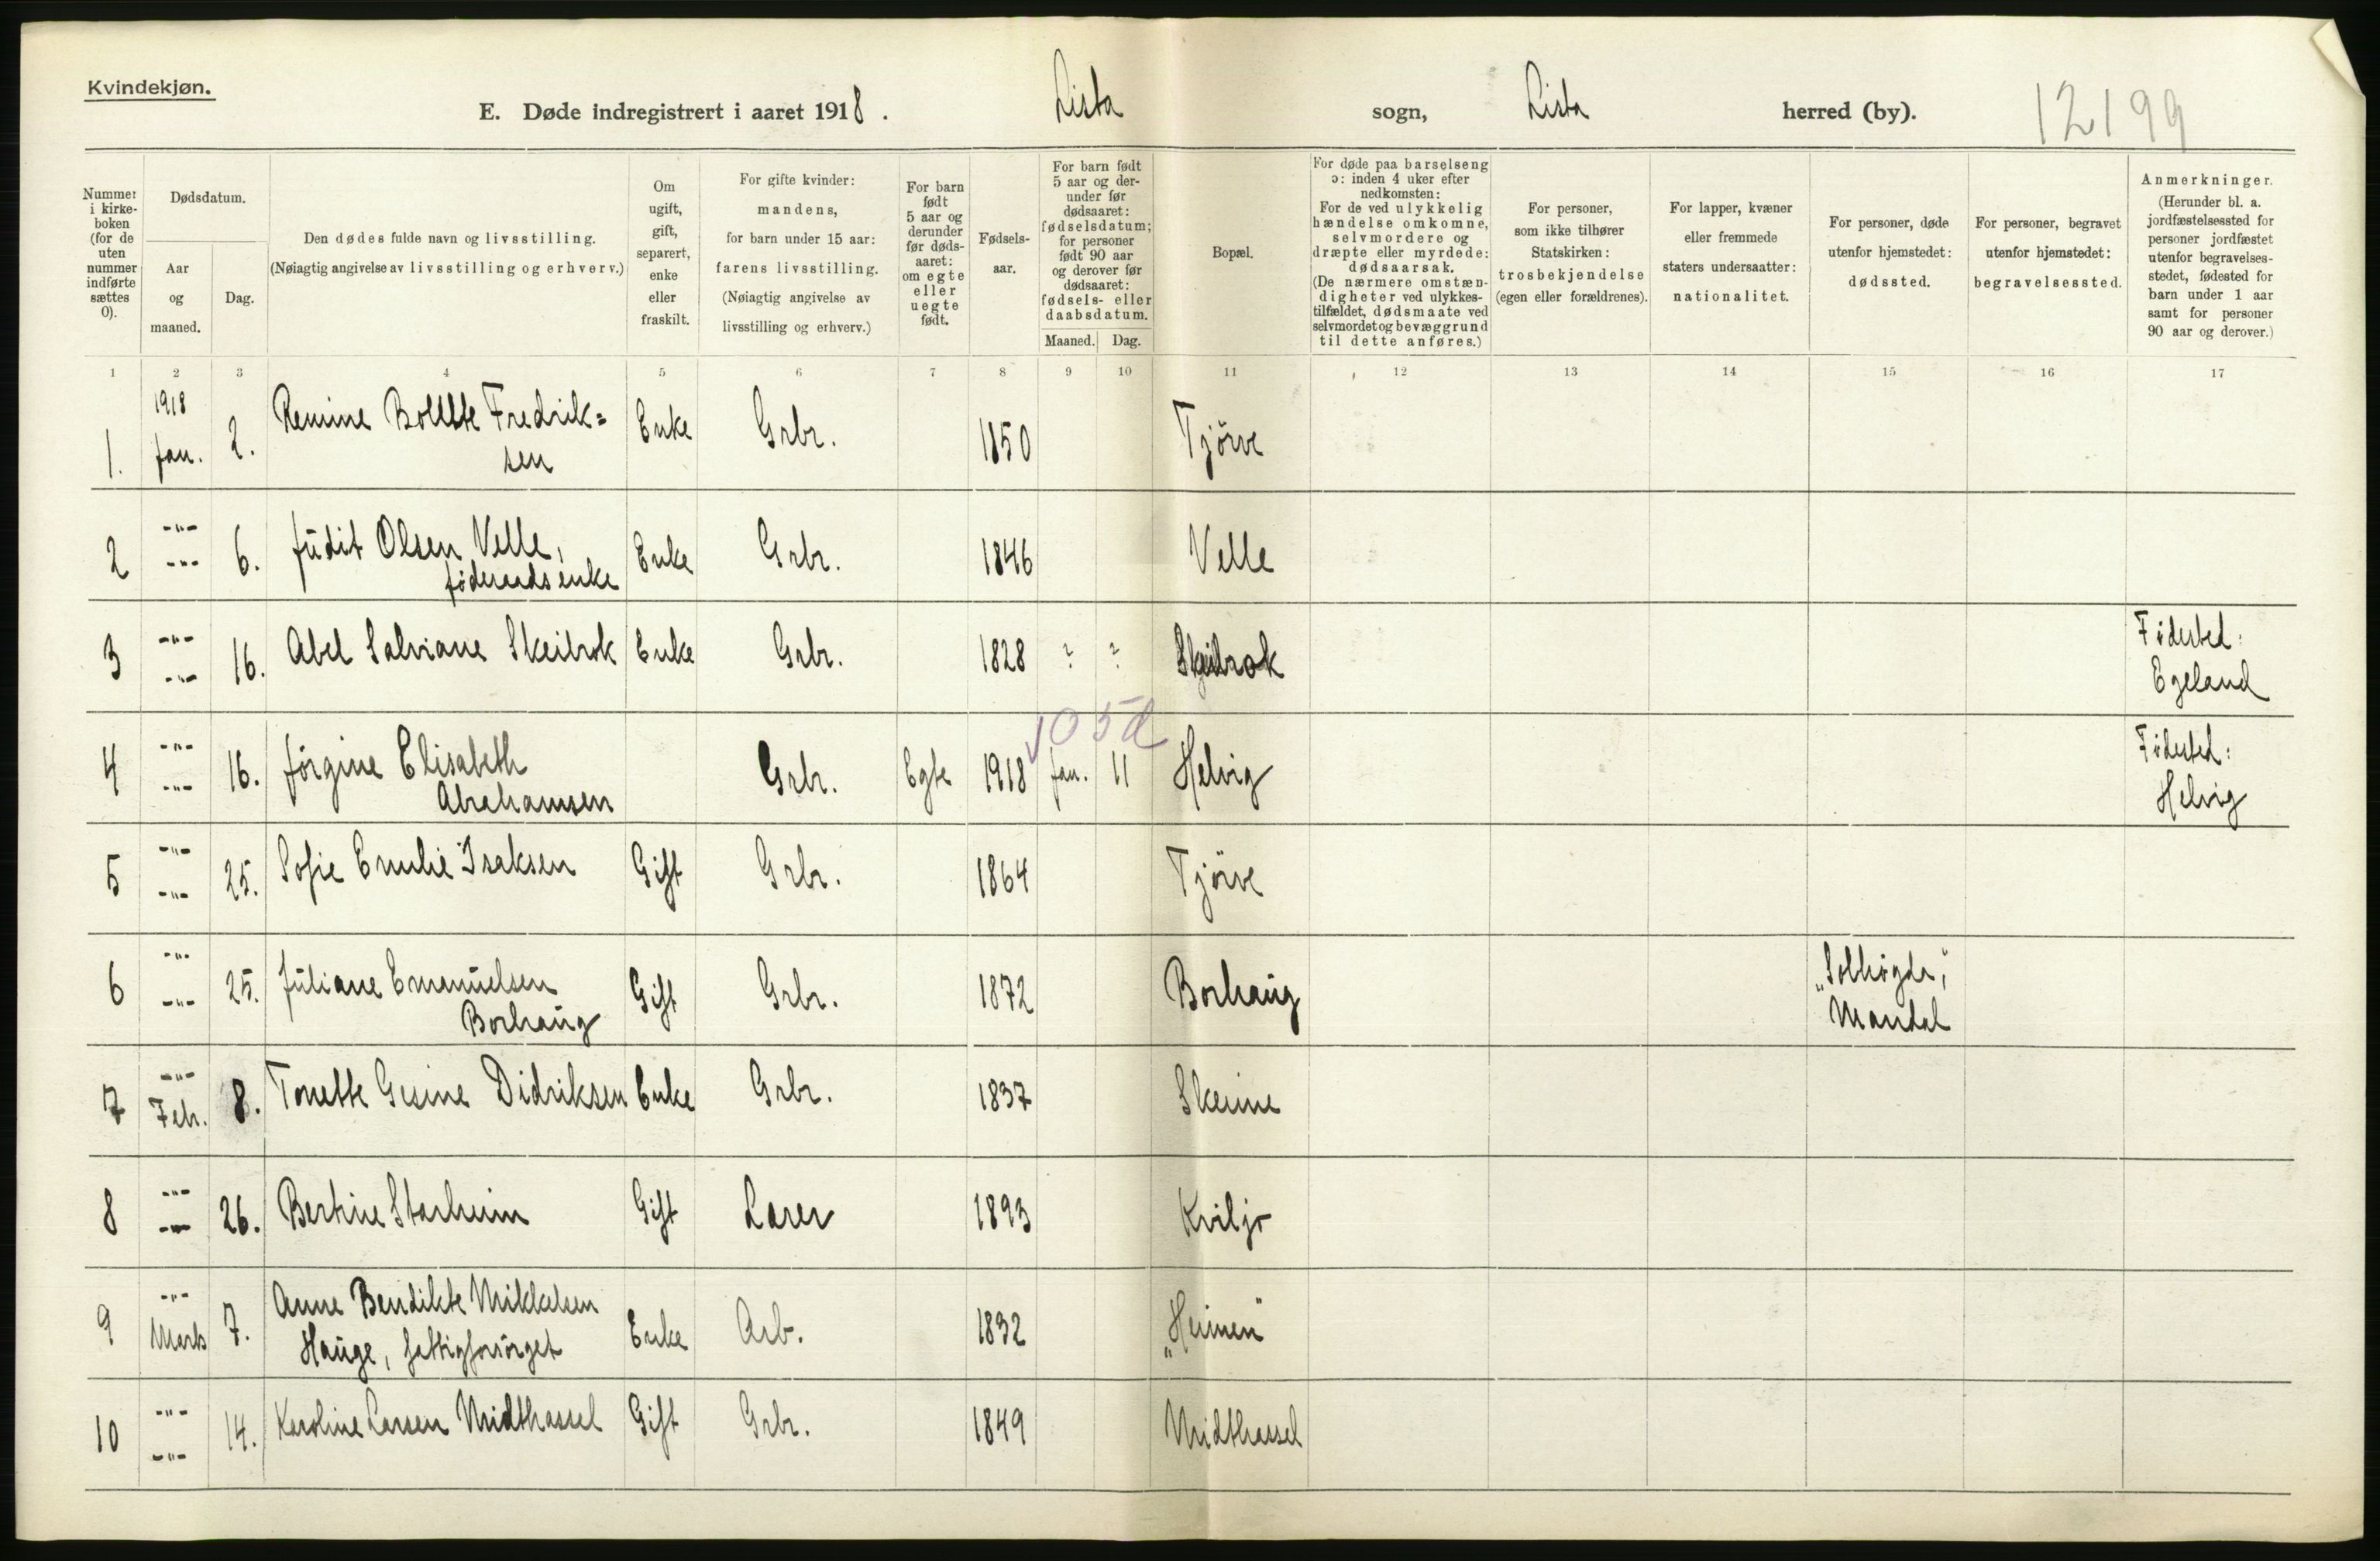 Kvindekjøn.
E. Døde indregistrert i aaret 1918. Lista sogn, Lista herred (by). 12199
Nummer i kirkeboken (for de uten nummer indførte sættes 0).
Dødsdatum.
Aar og maaned.
Dag.
Den dødes fulde navn og livsstilling.
(Nøiagtig angivelse av livsstilling og erhverv.)
Om ugift, gift, separert, enke eller fraskilt.
For gifte kvinder: mandens, for barn under 15 aar: farens livsstilling. (Nøiagtig angivelse av livsstilling og erhverv.)
For barn født 5 aar og derunder før dødsaaret: om egte eller uegte født.
Fødselsaar.
For barn født 5 aar og derunder før dødsaaret: fødselsdatum; for personer født 90 aar og derover før dødsaaret: fødsels- eller daabsdatum.
Maaned. Dag.
Bopæl.
For døde paa barselseng ɔ: inden 4 uker efter nedkomsten: For de ved ulykkelig hændelse omkomne, selvmordere og dræpte eller myrdede: dødsaarsak. (De nærmere omstændigheter ved ulykkestilfældet, dødsmaate ved selvmordet og bevæggrund til dette anføres.)
For personer, som ikke tilhører Statskirken: trosbekjendelse (egen eller forældrenes).
For lapper, kvæner eller fremmede staters undersaatter: nationalitet.
For personer, døde utenfor hjemstedet: dødssted.
For personer, begravet utenfor hjemstedet: begravelsessted.
Anmerkninger. (Herunder bl. a. jordfæstelsessted for personer jordfæstet utenfor begravelsesstedet, fødested for barn under 1 aar samt for personer 90 aar og derover.)
1 2 3 4 5 6 7 8 9 10 11 12 13 14 15 16 17
1. 1918 Jan. 2. Remine Bollette Fredriksen Enke Grbr. 1850 Tjörve
2 -"- -"- 6. Judit Olsen Velle, föderaadsenke Enke Grbr. 1846 Velle
3 -"- -"- 16. Abel Salviane Skeibrok Enke Grbr. 1828 ? ? Skeibrok Födested: Egeland
105d
4 -"- -"- 16. Jörgine Elisabeth Abrahamsen Grbr. Egte 1918 Jan. 11 Helvig Födested: Helvig
5 -"- -"- 25. Sofie Emilie Isaksen Gift Grbr. 1864 Tjörve
6 -"- -"- 25. Juliane Emanuelsen Borhaug Gift Grbr. 1872 Borhaug "Solhögda", Mandal
7 -"- Feb. 8. Tonette Gesine Didriksen Enke Grbr. 1837 Skeime
8 -"- -"- 26. Bertine Starheim Gift Lærer 1893 Kviljo
9 -"- Marts 7. Anne Bendikte Mikkelsen Hauge, fattigforsörget Enke Arb. 1832 "Heimen"
10 -"- -"- 14. Karoline Larsen Midthassel Gift Grbr. 1849 Midthassel